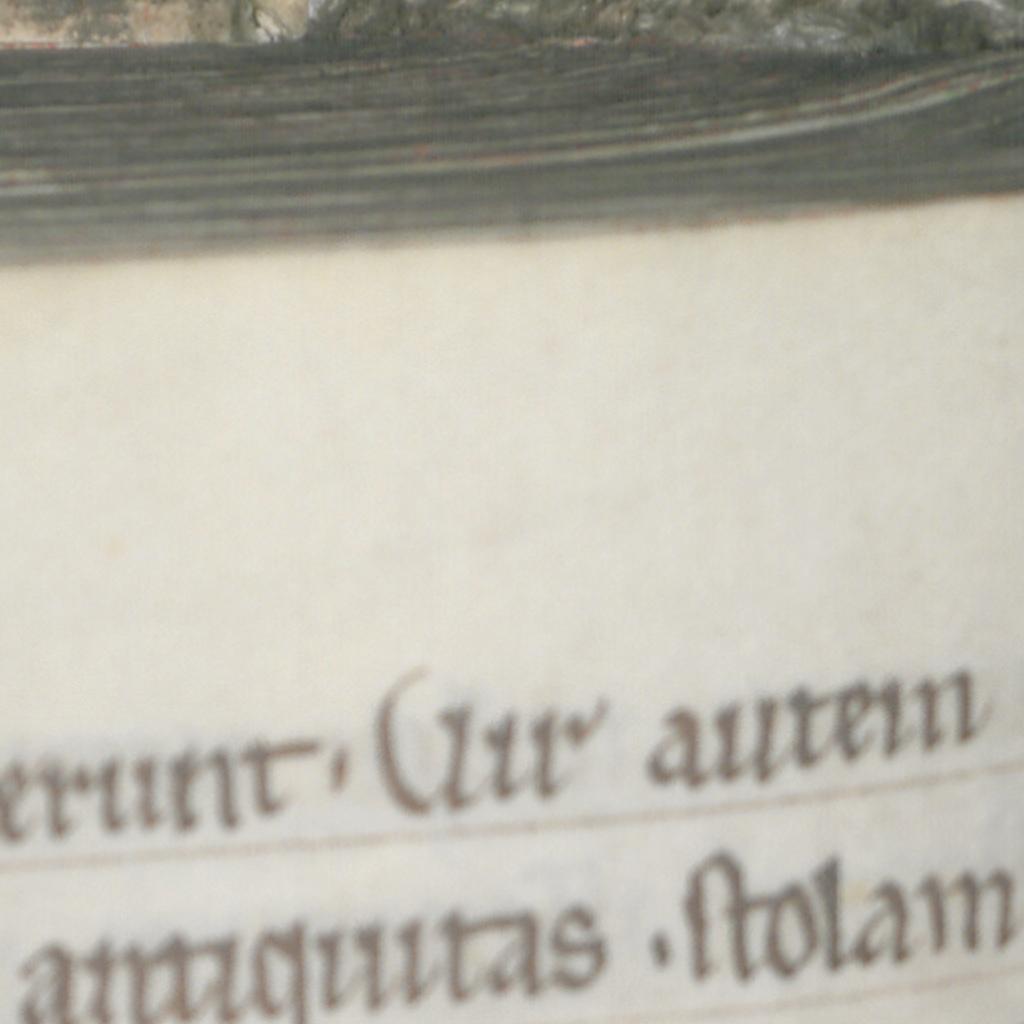 erunt. Cur autem
antiquitas .stolam